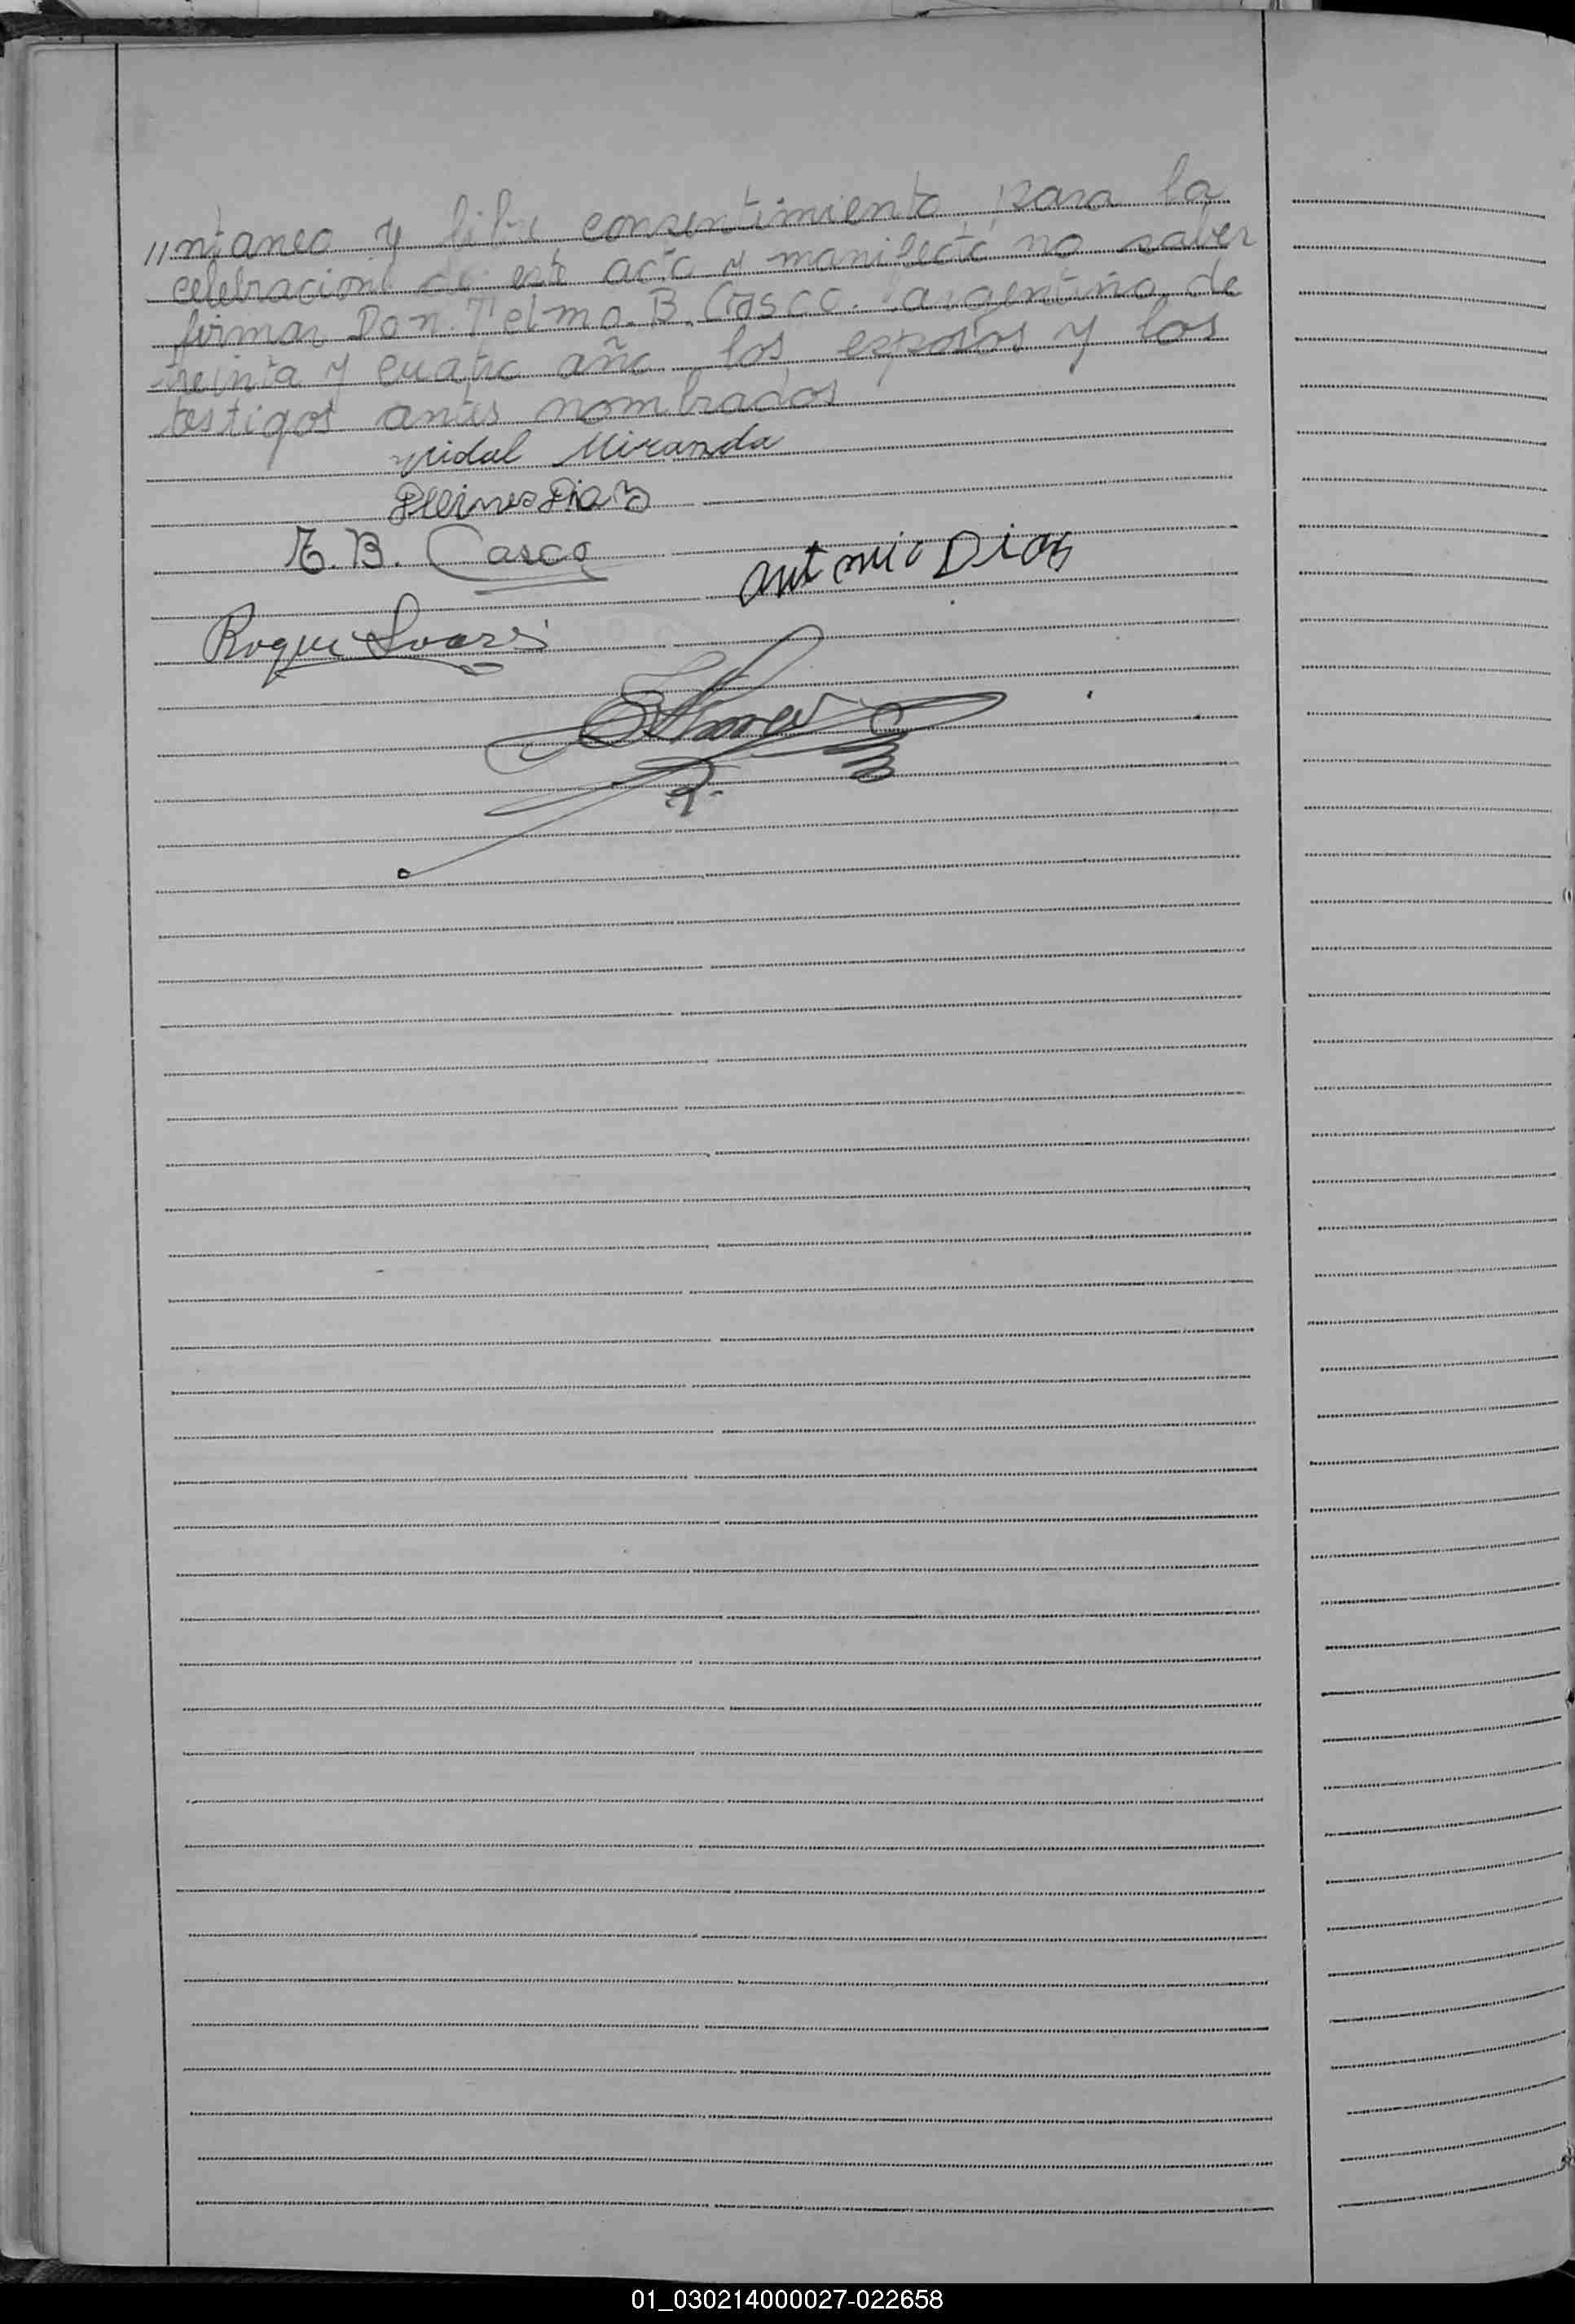 //ntaneo y libre consentimiento para la
celebracion de este acto y manifesto no saber
firmar Don. Telmo. B. Casco. argentino de
treinta y cuatro año los esposos y los
testigos antes nombrados
Vidal Miranda
Diaz
T. B. Casco
antonio Dias
Roque
01_030214000027-022658